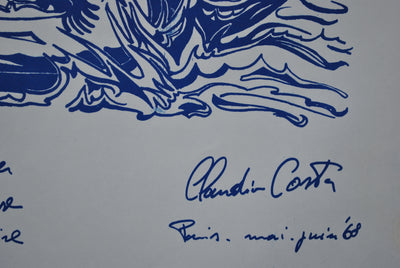 Claudio Costa
Paris. mai. juin '68